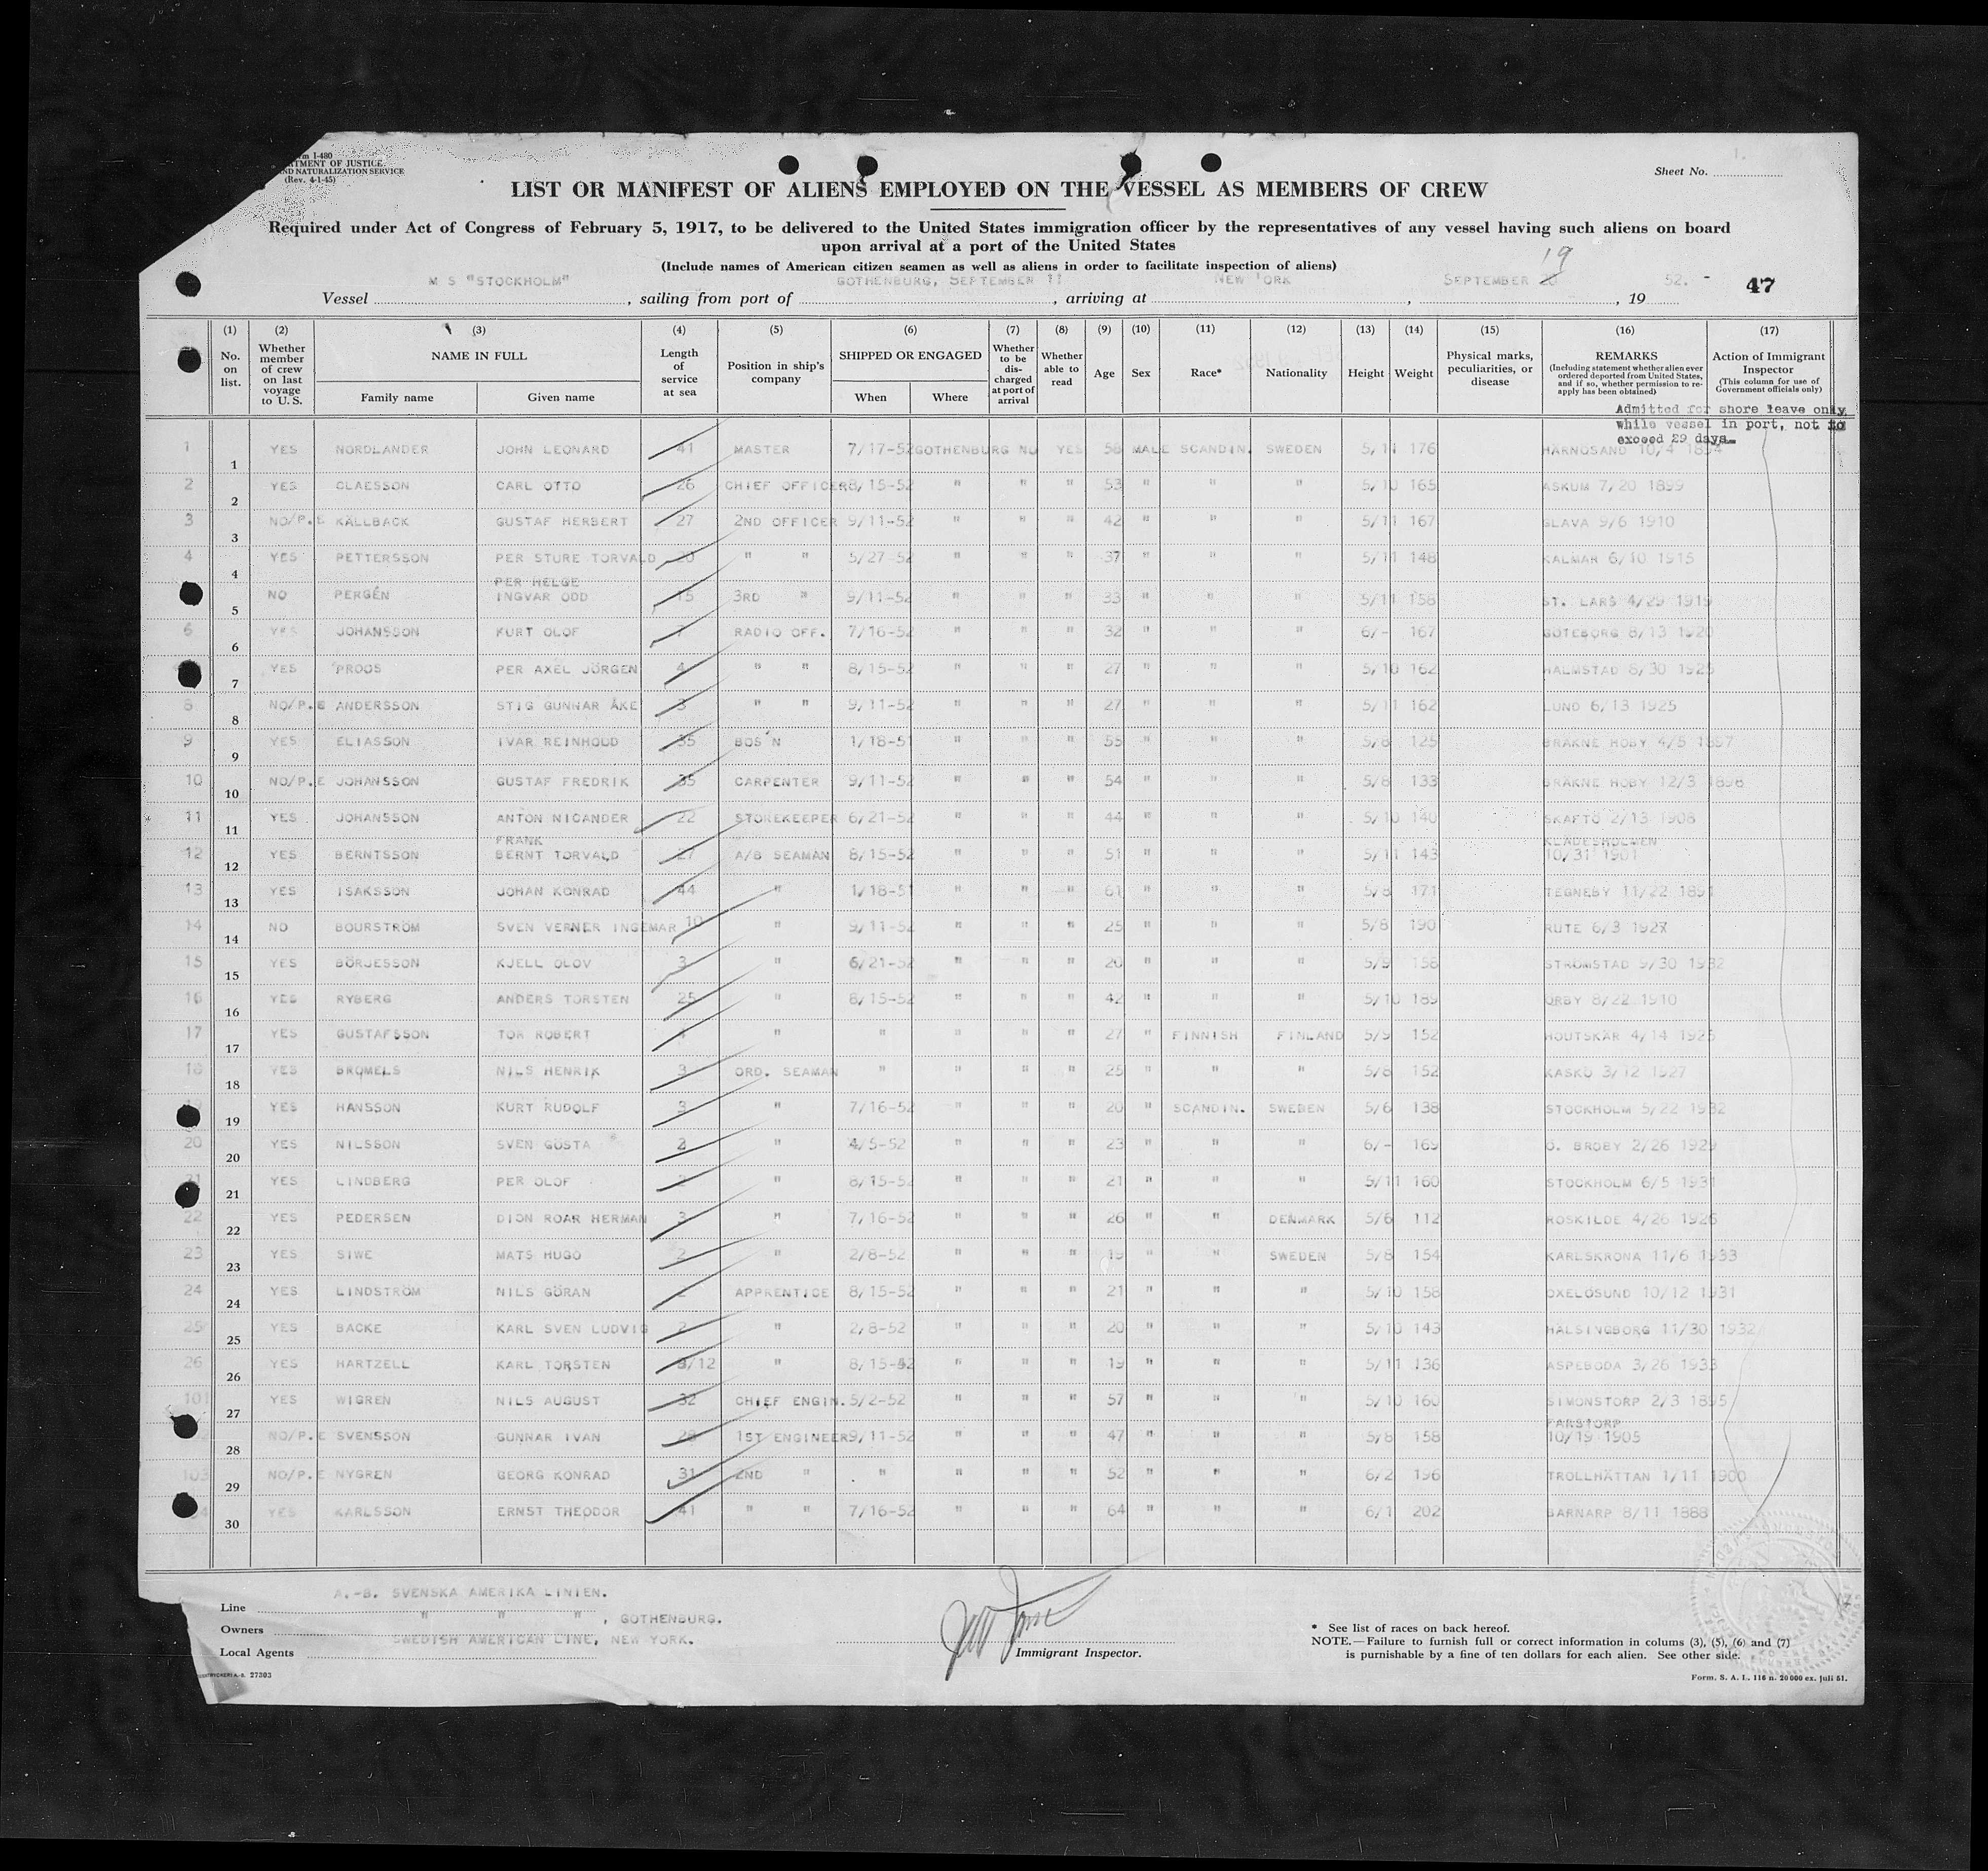 Form I-480
DEPARTMENT OF JUSTICE
AND NATURALIZATION SERVICE
(Rev. 4-1-45)
Sheet No. 1.
LIST OR MANIFEST OF ALIENS EMPLOYED ON THE VESSEL AS MEMBERS OF CREW
Required under Act of Congress of February 5, 1917, to be delivered to the United States immigration officer by the representatives of any vessel having such aliens on board
upon arrival at a port of the United States
(Include names of American citizen seamen as well as aliens in order to facilitate inspection of aliens)
19
Vessel M S "STOCKHOLM", sailing from port of GOTHENBURG, SEPTEMBER 11, arriving at NEW YORK, SEPTEMBER 20, 1952. - 47
(1) (2) (3) (4) (5) (6) (7) (8) (9) (10) (11) (12) (13) (14) (15) (16) (17)
No. on list. Whether member of crew on last voyage to U. S. NAME IN FULL Family name Given name Length of service at sea Position in ship's company SHIPPED OR ENGAGED When Where Whether to be discharged at port of arrival Whether able to read Age Sex Race* Nationality Height Weight Physical marks, peculiarities, or disease REMARKS (Including statement whether alien ever ordered deported from United States, and if so, whether permission to reapply has been obtained) Action of Immigrant Inspector (This column for use of Government officials only)
Admitted for shore leave only
while vessel in port, not to
exceed 29 days.
1 1 YES NORDLANDER JOHN LEONARD 41 MASTER 7/17-52 GOTHENBURG NO YES 58 MALE SCANDIN. SWEDEN 5/11 176 HÄRNÖSAND 10/4 1894
2 2 YES CLAESSON CARL OTTO 26 CHIEF OFFICER 8/15-52 " " " 53 " " " 5/10 165 ASKUM 7/20 1899
3 3 NO/P.E KÄLLBACK GUSTAF HERBERT 27 2ND OFFICER 9/11-52 " " " 42 " " " 5/11 167 GLAVA 9/6 1910
4 4 YES PETTERSSON PER STURE TORVALD 20 " " 5/27-52 " " " 37 " " " 5/11 148 KALMAR 6/10 1915
5 NO PERGÉN PER HELGE INGVAR ODD 15 3RD " 9/11-52 " " " 33 " " " 5/11 158 ST. LARS 4/29 1919
6 6 YES JOHANSSON KURT OLOF 7 RADIO OFF. 7/16-52 " " " 32 " " " 6/- 167 GÖTEBORG 8/13 1920
7 YES PROOS PER AXEL JÖRGEN 4 " " 8/15-52 " " " 27 " " " 5/10 162 HALMSTAD 8/30 1925
8 8 NO/P.E ANDERSSON STIG GUNNAR ÅKE 3 " " 9/11-52 " " " 27 " " " 5/11 162 LUND 6/13 1925
9 9 YES ELIASSON IVAR REINHOLD 35 BOS'N 1/18-51 " " " 55 " " " 5/8 125 BRÄKNE HOBY 4/5 1897
10 10 NO/P.E JOHANSSON GUSTAF FREDRIK 35 CARPENTER 9/11-52 " " " 54 " " " 5/8 133 BRÄKNE HOBY 12/3 1898
11 11 YES JOHANSSON ANTON NICANDER 22 STOREKEEPER 6/21-52 " " " 44 " " " 5/10 140 SKAFTÖ 2/13 1908
12 12 YES BERNTSSON FRANK BERNT TORVALD 27 A/B SEAMAN 8/15-52 " " " 51 " " " 5/11 143 KLÄDESHOLMEN 10/31 1901
13 13 YES ISAKSSON JOHAN KONRAD 44 " 1/18-51 " " " 61 " " " 5/8 171 TEGNEBY 11/22 1891
14 14 NO BOURSTRÖM SVEN VERNER INGEMAR 10 " 9/11-52 " " " 25 " " " 5/8 190 RUTE 6/3 1927
15 15 YES BÖRJESSON KJELL OLOV 3 " 6/21-52 " " " 20 " " " 5/9 158 STRÖMSTAD 9/30 1932
16 16 YES RYBERG ANDERS TORSTEN 25 " 8/15-52 " " " 42 " " " 5/10 189 ÖRBY 8/22 1910
17 17 YES GUSTAFSSON TOR ROBERT 4 " " " " " 27 " FINNISH FINLAND 5/9 152 HOUTSKÄR 4/14 1925
18 18 YES BROMELS NILS HENRIK 3 ORD. SEAMAN " " " " 25 " " " 5/8 152 KASKÖ 3/12 1927
19 19 YES HANSSON KURT RUDOLF 3 " 7/16-52 " " " 20 " SCANDIN. SWEDEN 5/6 138 STOCKHOLM 5/22 1932
20 20 YES NILSSON SVEN GÖSTA 2 " 4/5-52 " " " 23 " " " 6/- 169 Ö. BROBY 2/26 1929
21 21 YES LINDBERG PER OLOF " 8/15-52 " " " 21 " " " 5/11 160 STOCKHOLM 6/5 1931
22 22 YES PEDERSEN DION ROAR HERMAN 3 " 7/16-52 " " " 26 " " DENMARK 5/6 112 ROSKILDE 4/26 1926
23 23 YES SIWE MATS HUGO 2 " 2/8-52 " " " 19 " " SWEDEN 5/8 154 KARLSKRONA 11/6 1933
24 24 YES LINDSTRÖM NILS GÖRAN APPRENTICE 8/15-52 " " " 21 " " " 5/10 158 OXELÖSUND 10/12 1931
25 25 YES BACKE KARL SVEN LUDVIG 2 " 2/8-52 " " " 20 " " " 5/10 143 HÄLSINGBORG 11/30 1932
26 26 YES HARTZELL KARL TORSTEN 8/12 " 8/15-52 " " " 19 " " " 5/11 136 ASPEBODA 3/26 1933
101 27 YES WIGREN NILS AUGUST 32 CHIEF ENGIN. 5/2-52 " " " 57 " " " 5/10 160 SIMONSTORP 2/3 1895
28 NO/P.E SVENSSON GUNNAR IVAN 28 1ST ENGINEER 9/11-52 " " " 47 " " " 5/8 158 FARSTORP 10/19 1905
103 29 NO/P.E NYGREN GEORG KONRAD 31 2ND " " " " " 52 " " " 6/2 196 TROLLHÄTTAN 1/11 1900
30 YES KARLSSON ERNST THEODOR 41 " " 7/16-52 " " " 64 " " " 6/1 202 BARNARP 8/11 1888
Line A.-B. SVENSKA AMERIKA LINIEN.
Owners " " ", GOTHENBURG.
Local Agents SWEDISH AMERICAN LINE, NEW YORK.
Immigrant Inspector.
* See list of races on back hereof.
NOTE.—Failure to furnish full or correct information in colums (3), (5), (6) and (7)
is punishable by a fine of ten dollars for each alien. See other side.
27303
Form. S. A. L. 116 n. 20 000 ex. Juli 51.